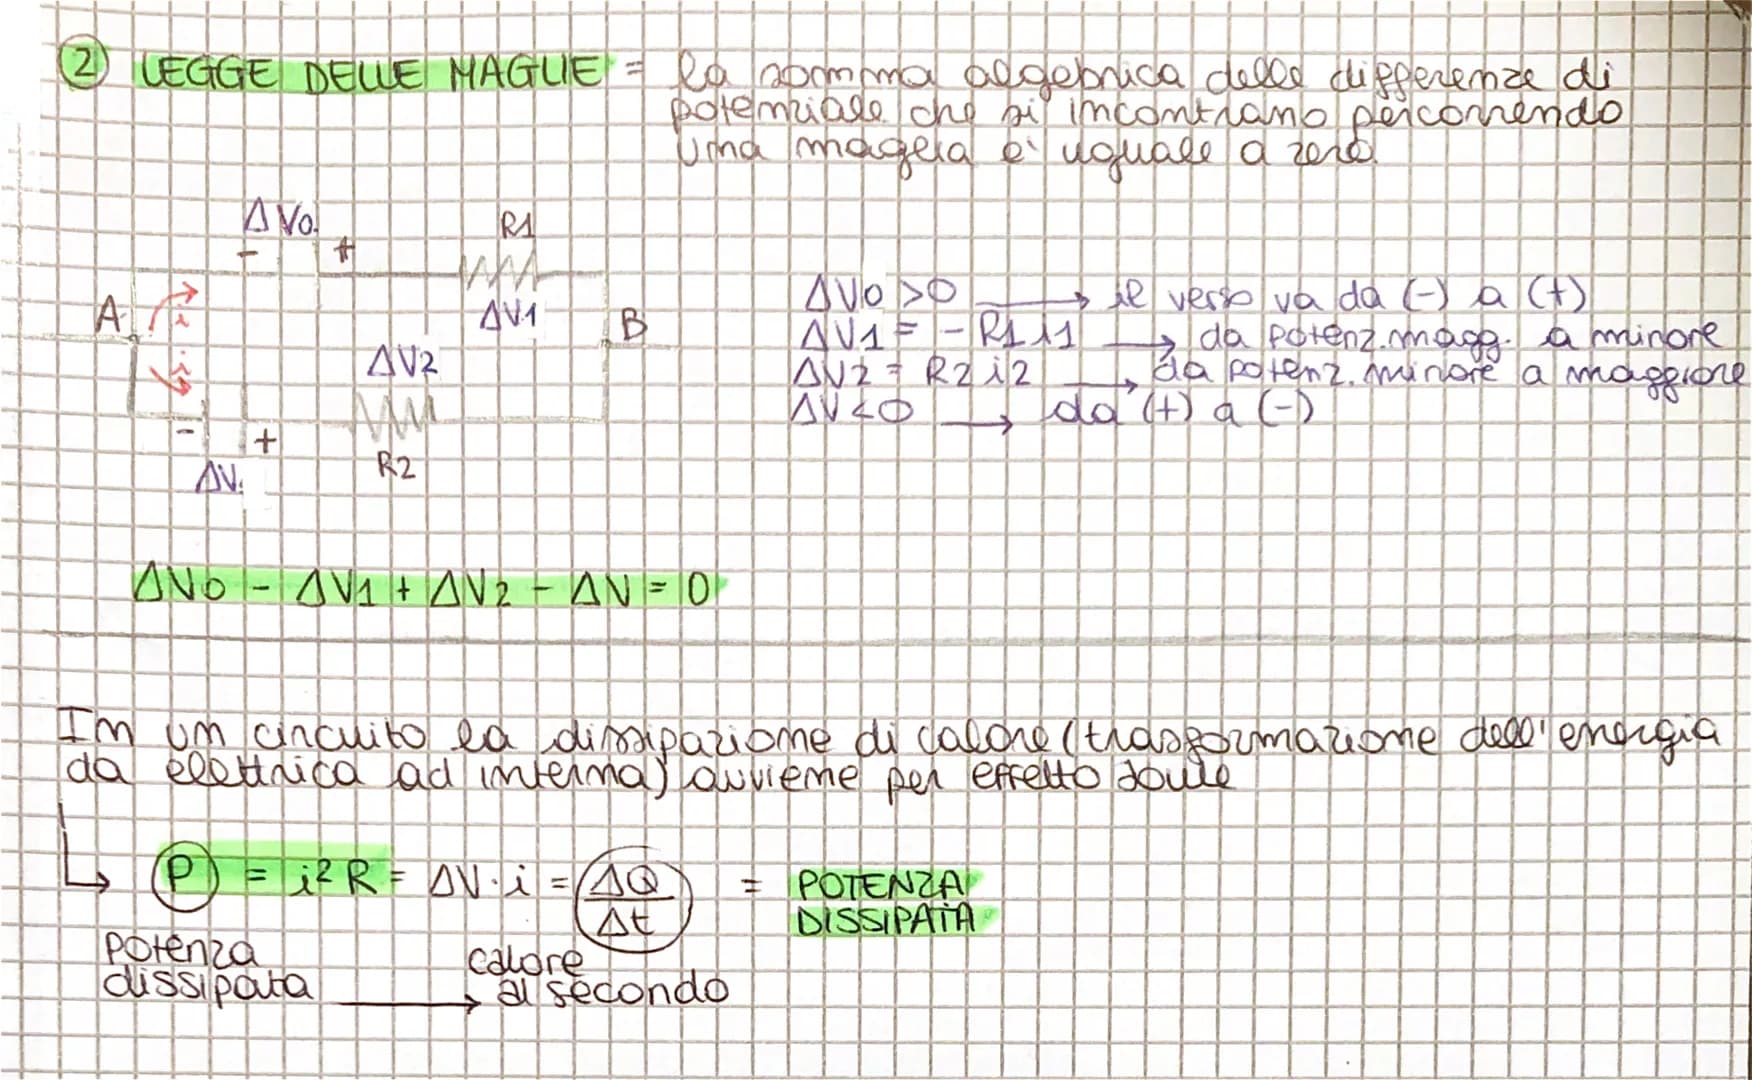 2 LEGGE DELLE MAGLIE = la somma algebrica delle differenze di
potenziale che si incontrano percorrendo
una maglia è uguale a zero.
ΔV0.
R1
- +
A
i
ΔV1
B
i
ΔV2
- +
R2
ΔV.
ΔV0 >0 → il verso va da (-) a (+)
ΔV1 = - R1 i1 → da potenz. magg. a minore
ΔV2 = R2 i2 → da potenz. minore a maggiore
ΔV<0 → da (+) a (-)
ΔV0 - ΔV1 + ΔV2 - ΔV = 0
In un circuito la dissipazione di calore (trasformazione dell'energia
da elettrica ad interna) avviene per effetto Joule
P = i² R = ΔV · i = ΔQ/Δt = POTENZA
DISSIPATA
potenza
dissipata → calore
al secondo